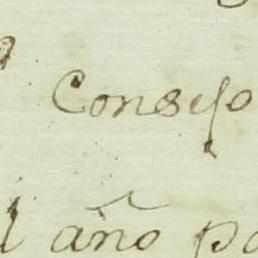 Consejo
año